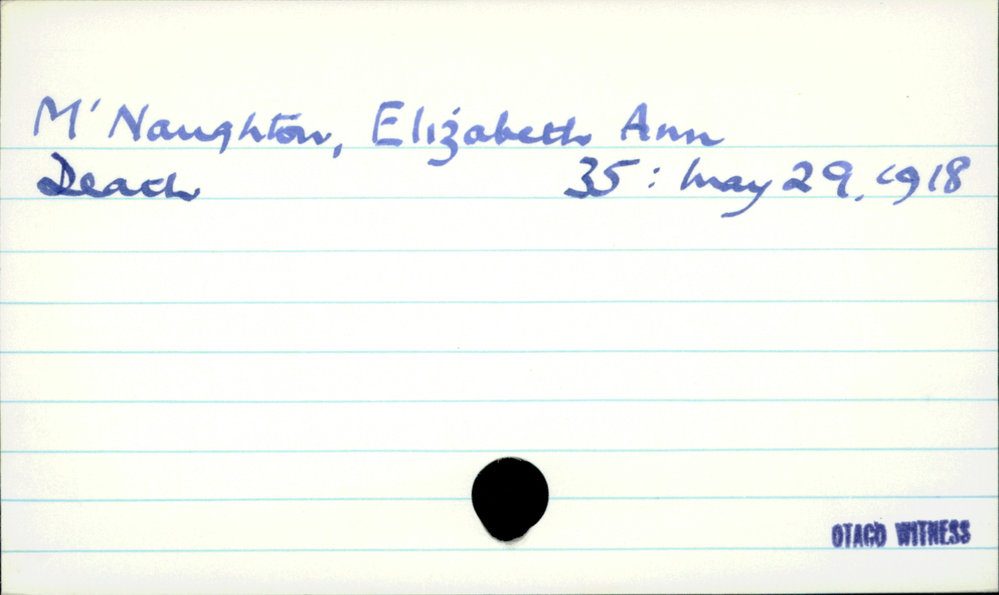 M'Naughton, Elizabeth Ann
Death 35: May 29, 1918
OTAGO WITNESS